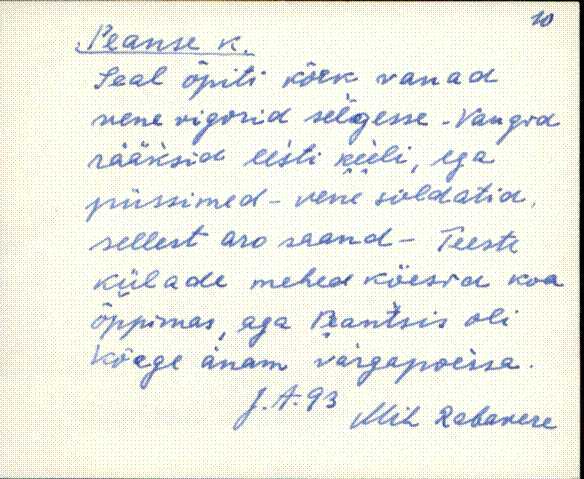 10
Peanse k.
Seal õpiti kõik vanad
vene vigurid selgesse - Vangid
rääksid eesti keeli, ega
püssimed - vene soldatid,
sellest aro saand - Teeste
külade mehed käesid koa
õppimas, aga Peantsis oli
kõege änam vargapoessa.
J.A. 93
MiH Rabavere